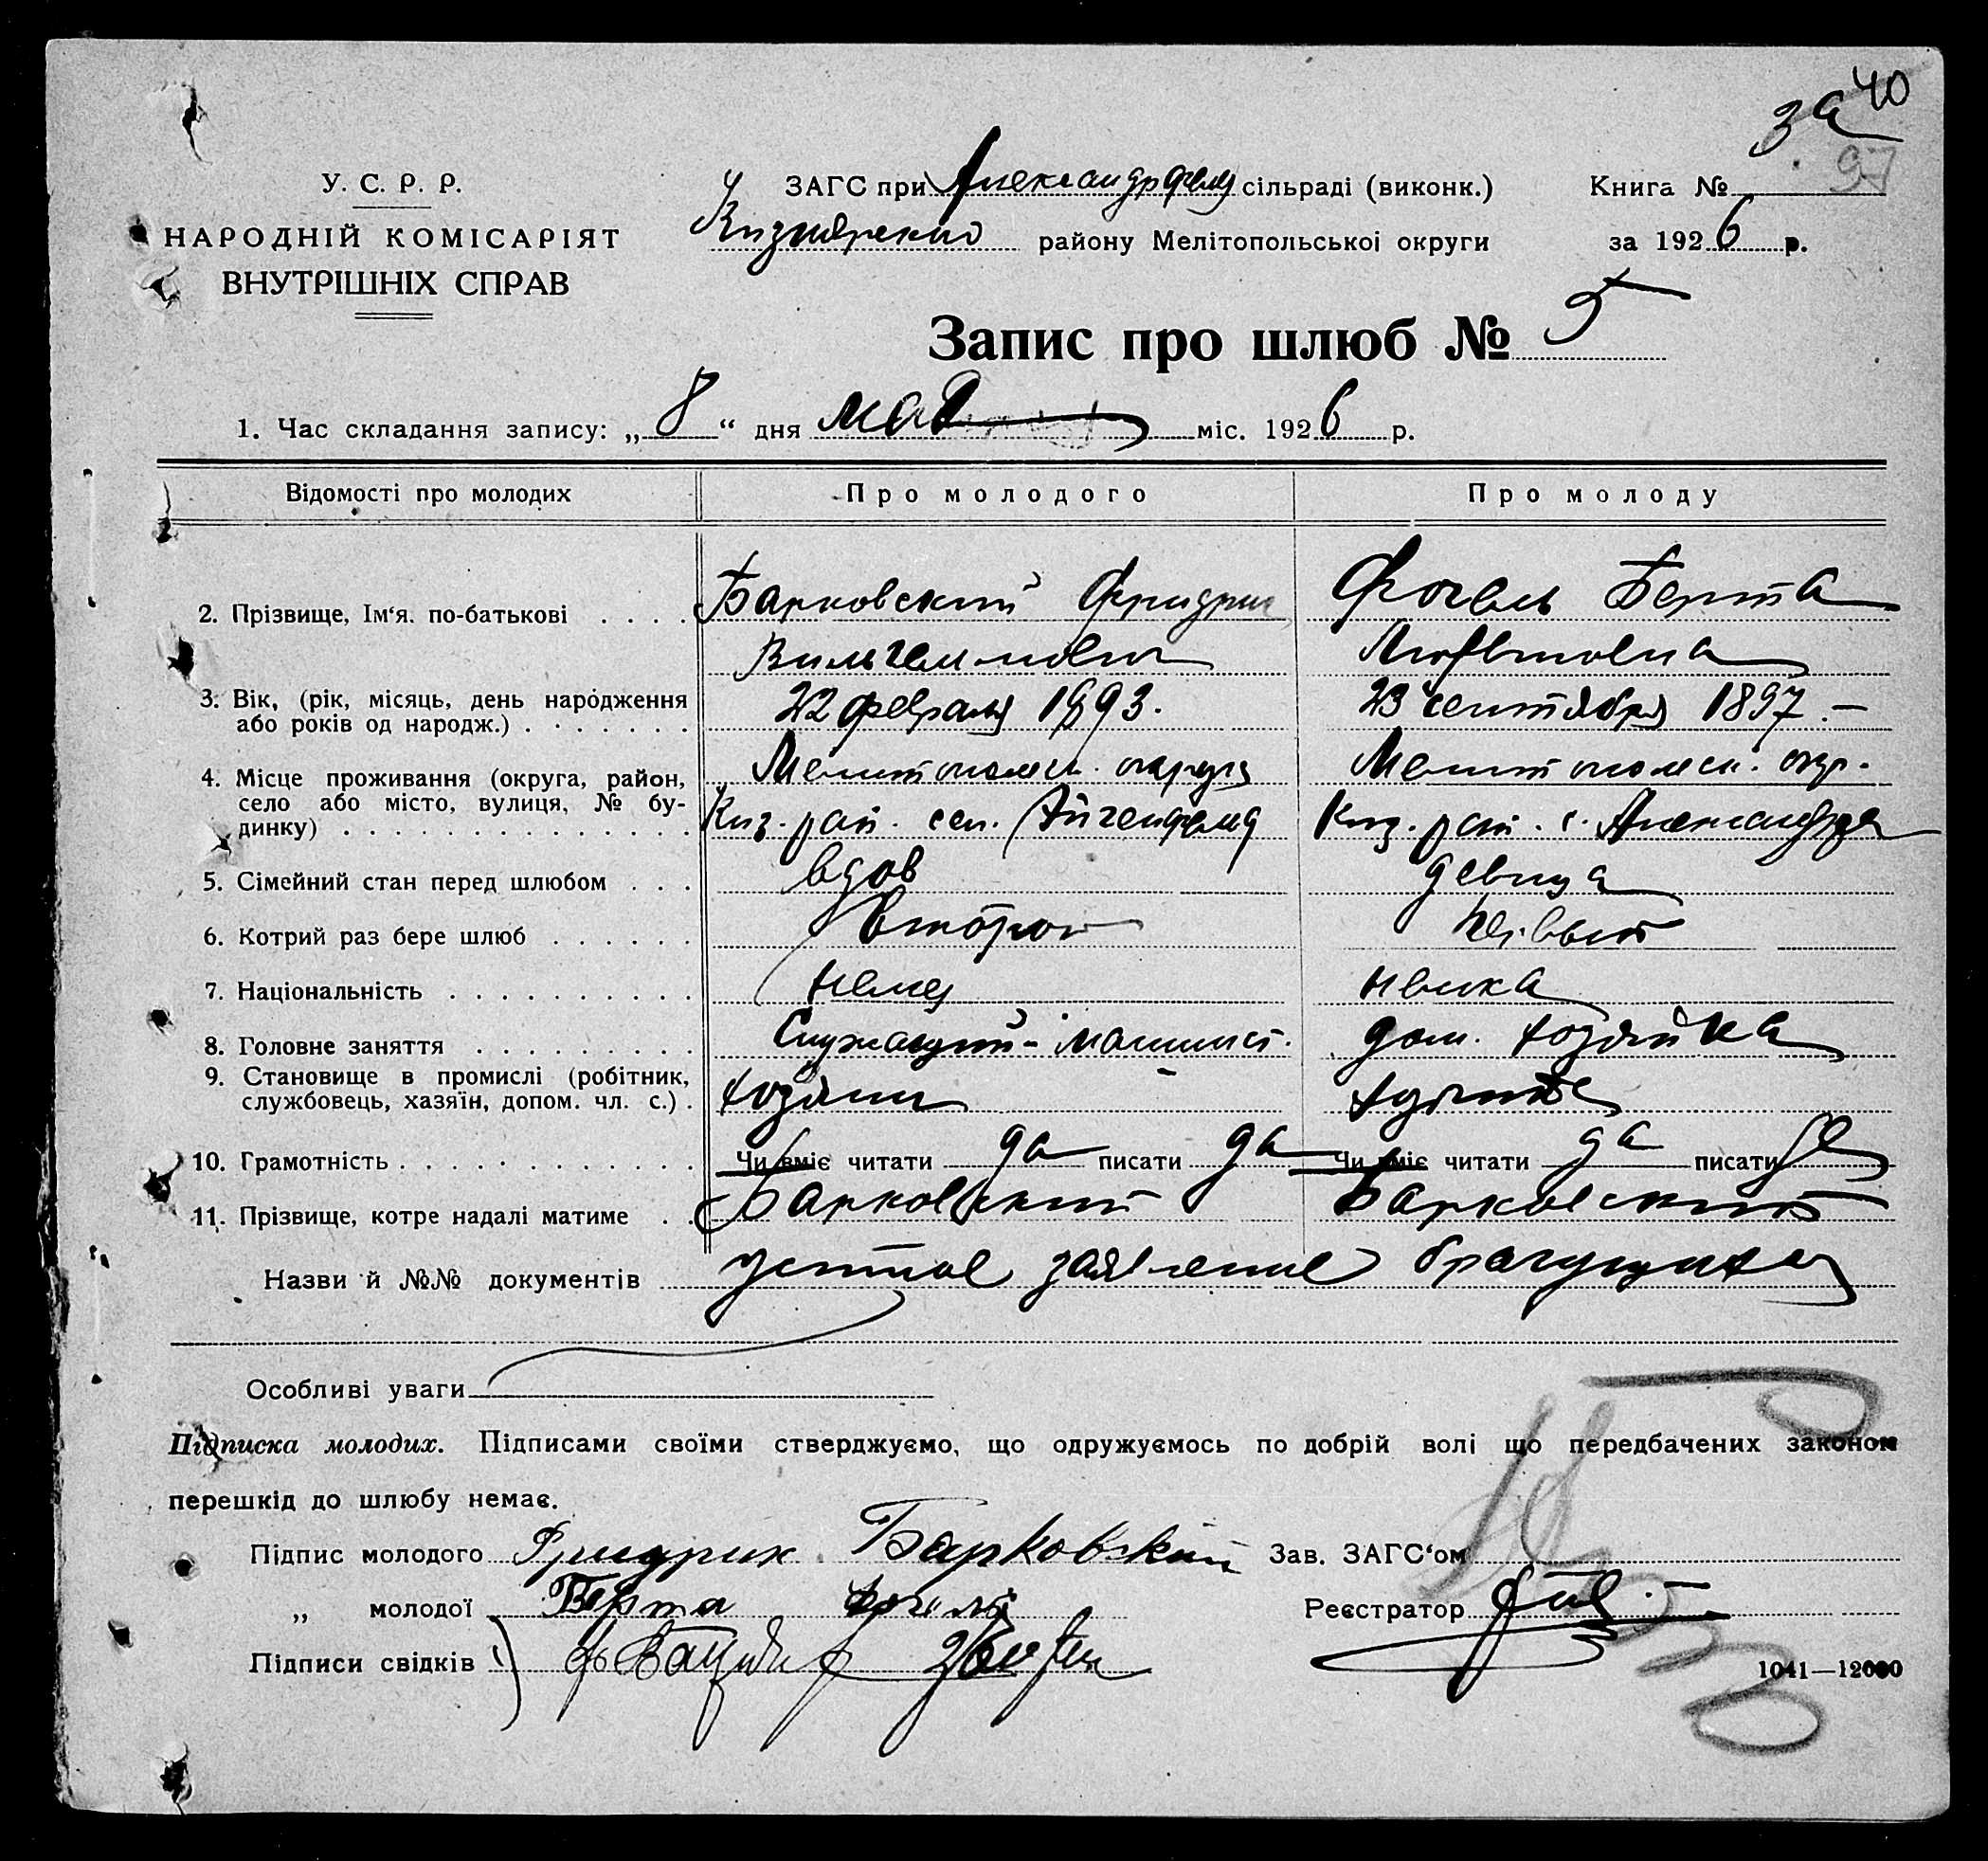 за 40
97
У. С. Р. Р.
НАРОДНІЙ КОМІСАРІЯТ
ВНУТРІШНІХ СПРАВ
ЗАГС при Александрфелд сільраді (виконк.)
районy Мелітопольської округи
Книга №
за 1926 р.
Запис про шлюб № 5
1. Час складання запису: „8“ дня мая міс. 1926 р.
Відомості про молодих Про молодого Про молоду
2. Прізвище, Ім‘я. по-батькові Барковский Фридрих Фогель Берта
Вильгельмович
3. Вік, (рік, місяць, день народження або років од народж.) 22 февраля 1893. 23 сентября 1897.–
4. Місце проживання (округа, район, село або місто, вулиця, № будинку) Мелитопольск. округа Мелитопольск. окр.
Киз. рай. сел. Айгенфелд Киз. рай. с. Александрфе
5. Сімейний стан перед шлюбом вдов девица
6. Котрий раз бере шлюб второй первый
7. Національність немец немка
8. Головне заняття Служащий-машинист. дом. хозяйка
9. Становище в промислі (робітник, службовець, хазяїн, допом. чл. с.) хозяин
10. Грамотність Чи вміє читати да писати да Чи вміє читати да писати да
11. Прізвище, котре надалі матиме Барковский Барковский
Назви й №№ документів устное заявление брачущихся
Особливі уваги
Підписка молодих. Підписами своїми стверджуємо, що одружуємось по добрій волі що передбачених законом
перешкід до шлюбу немає.
Підпис молодого Фридрих Барковский Зав. ЗАГС‘ом
„ молодої Берта Фогель Реєстратор
Підписи свідків
1041—12000